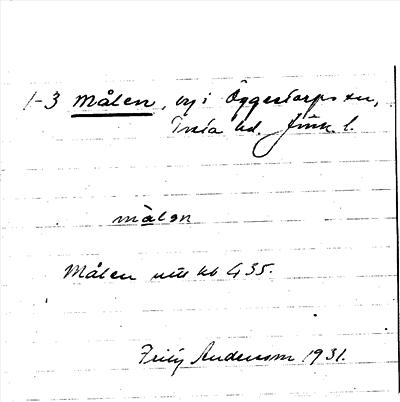 1-3 Målen, by i Öggestorps sn,
Tveta hd. Jönk. l.
målən
Målen utt hb 435.
Andersson 1931.